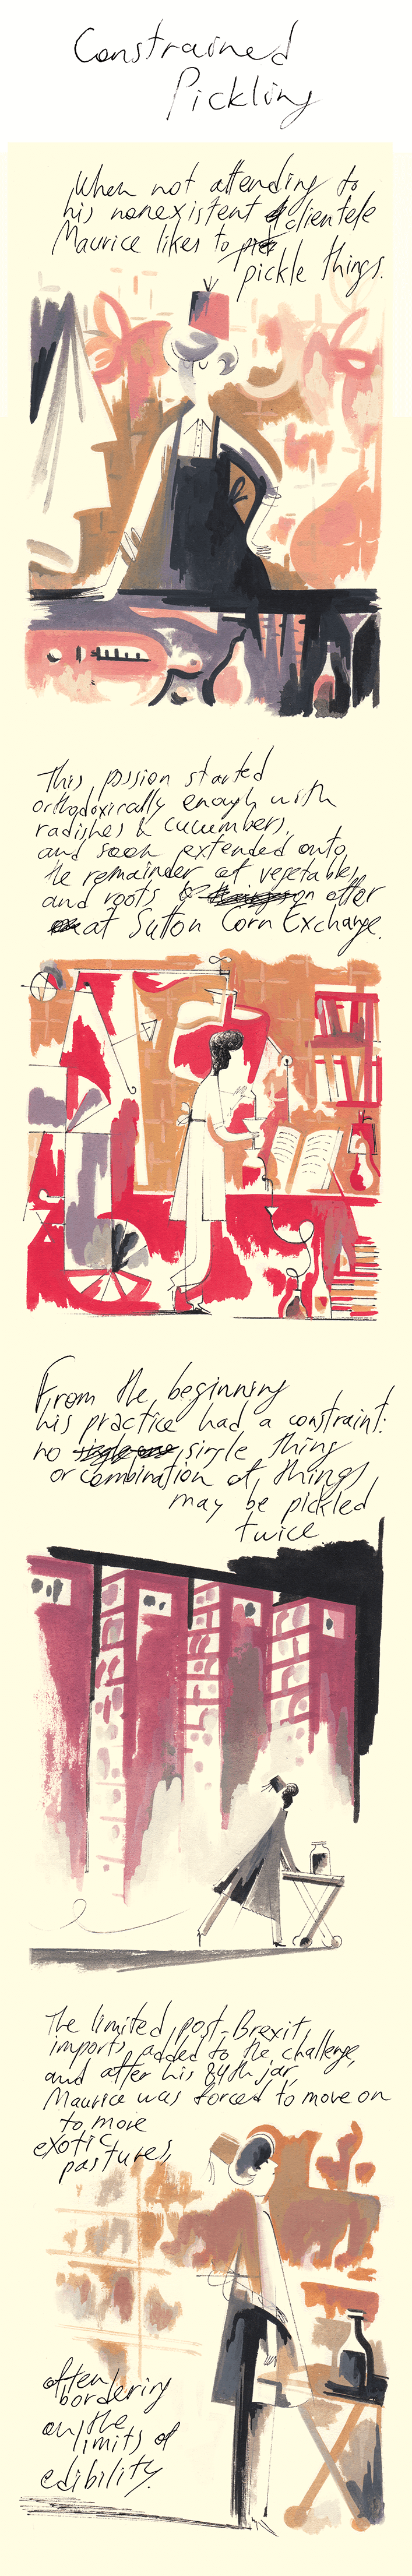 Constrained
Pickling
When not attending to
his nonexistent clientele
Maurice likes to
pickle things.
This passion started
orthodoxically enough with
radishes & cucumbers,
and soon extended onto
the remainder of vegetables
and roots on offer
at Sutton Corn Exchange.
From the beginning
his practice had a constraint:
no single thing
or combination of things
may be pickled
twice
The limited post-Brexit
imports added to the challenge,
and after his 84th jar,
Maurice was forced to move on
to more
exotic
pastures,
often
bordering
on the
limits of
edibility.